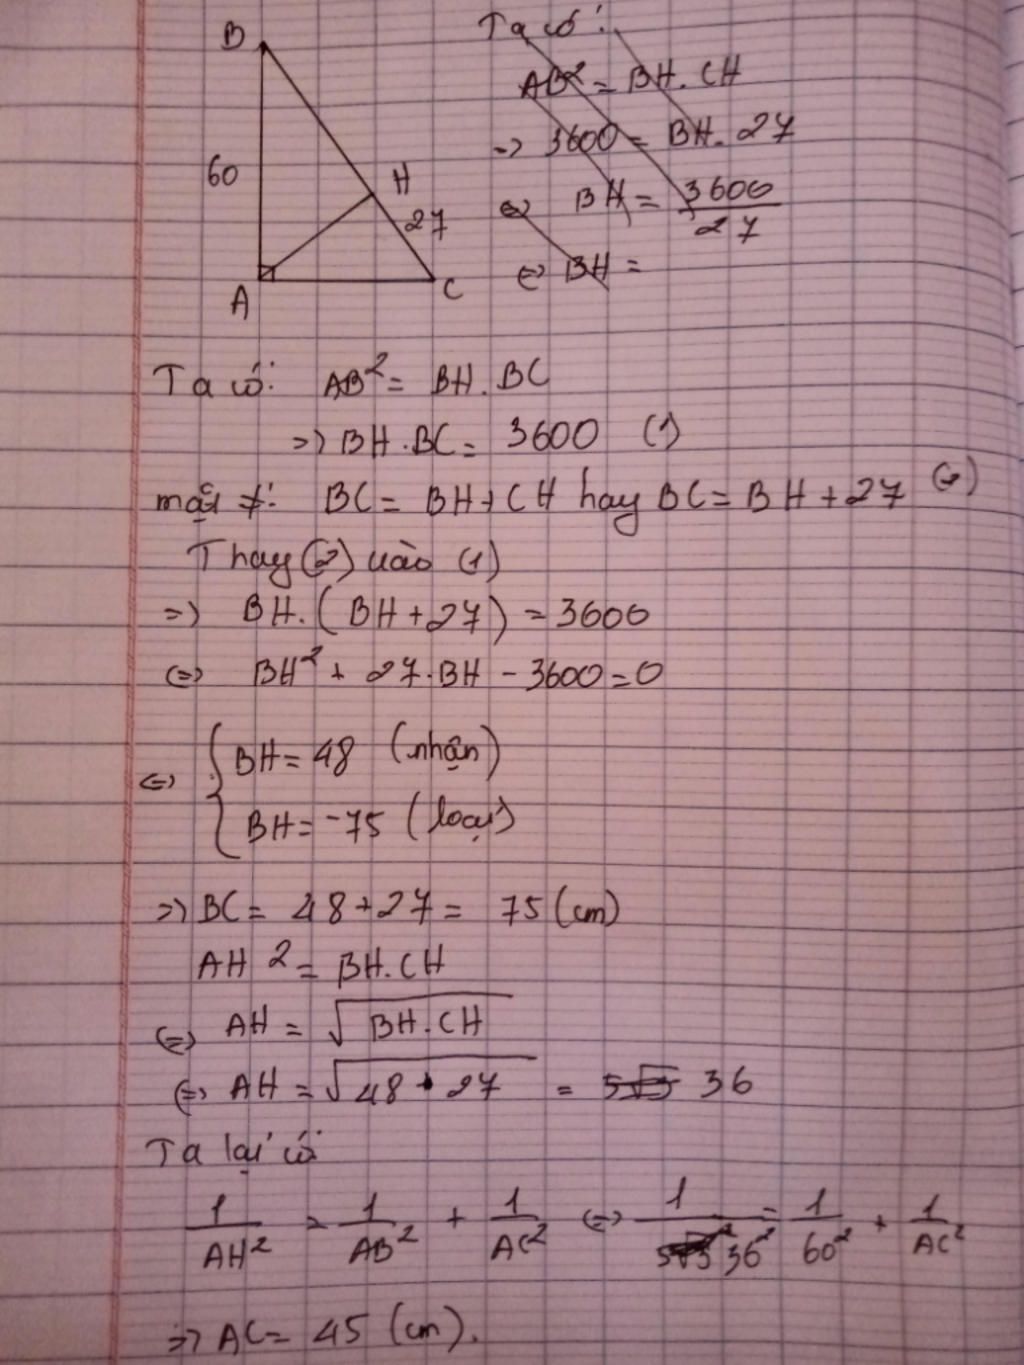 B
60
H
27
A
C
Ta có:
AB² = BH. CH
=> 3600 = BH. 27
<=> BH = 3600/27
<=> BH =
Ta có: AB² = BH. BC
=> BH.BC = 3600 (1)
mặt ≠: BC = BH + CH hay BC = BH + 27 (2)
Thay (2) vào (1)
=> BH. (BH + 27) = 3600
<=> BH² + 27.BH - 3600 = 0
<=> { BH = 48 (nhận)
BH = -75 (loại)
=> BC = 48 + 27 = 75 (cm)
AH² = BH.CH
<=> AH = √BH.CH
<=> AH = √48 . 27 = 5√3 36
Ta lại có
1/AH² = 1/AB² + 1/AC² <=> 1/5√3² 36² = 1/60² + 1/AC²
=> AC = 45 (cm).